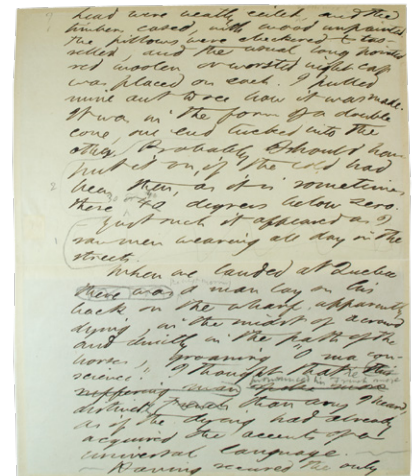 head were neatly ceiled, and the
timbers cased, with wood unpainted
The pillows were checkered &
and the usual long pointed
red woolen or worsted night cap
was placed on each. I pulled
mine out to see how it was made.
It was in the form of a double
cone one end tucked into the
other. Probably I should have
put it on, if the cold had
been then, as it is sometimes
there 30 or 40 degrees below zero.
Just such it appeared as I
saw men wearing all day in the
streets.
When we landed at Quebec
there was a man lay on his
back on the wharf, apparently
dying, in the midst of a crowd
and directly in the path of the
horses, groaning "O ma con-
science." I thought that
suffering man
distinctly than any I heard,
as if the dying had already
acquired the accents of a
universal language.
Having secured the